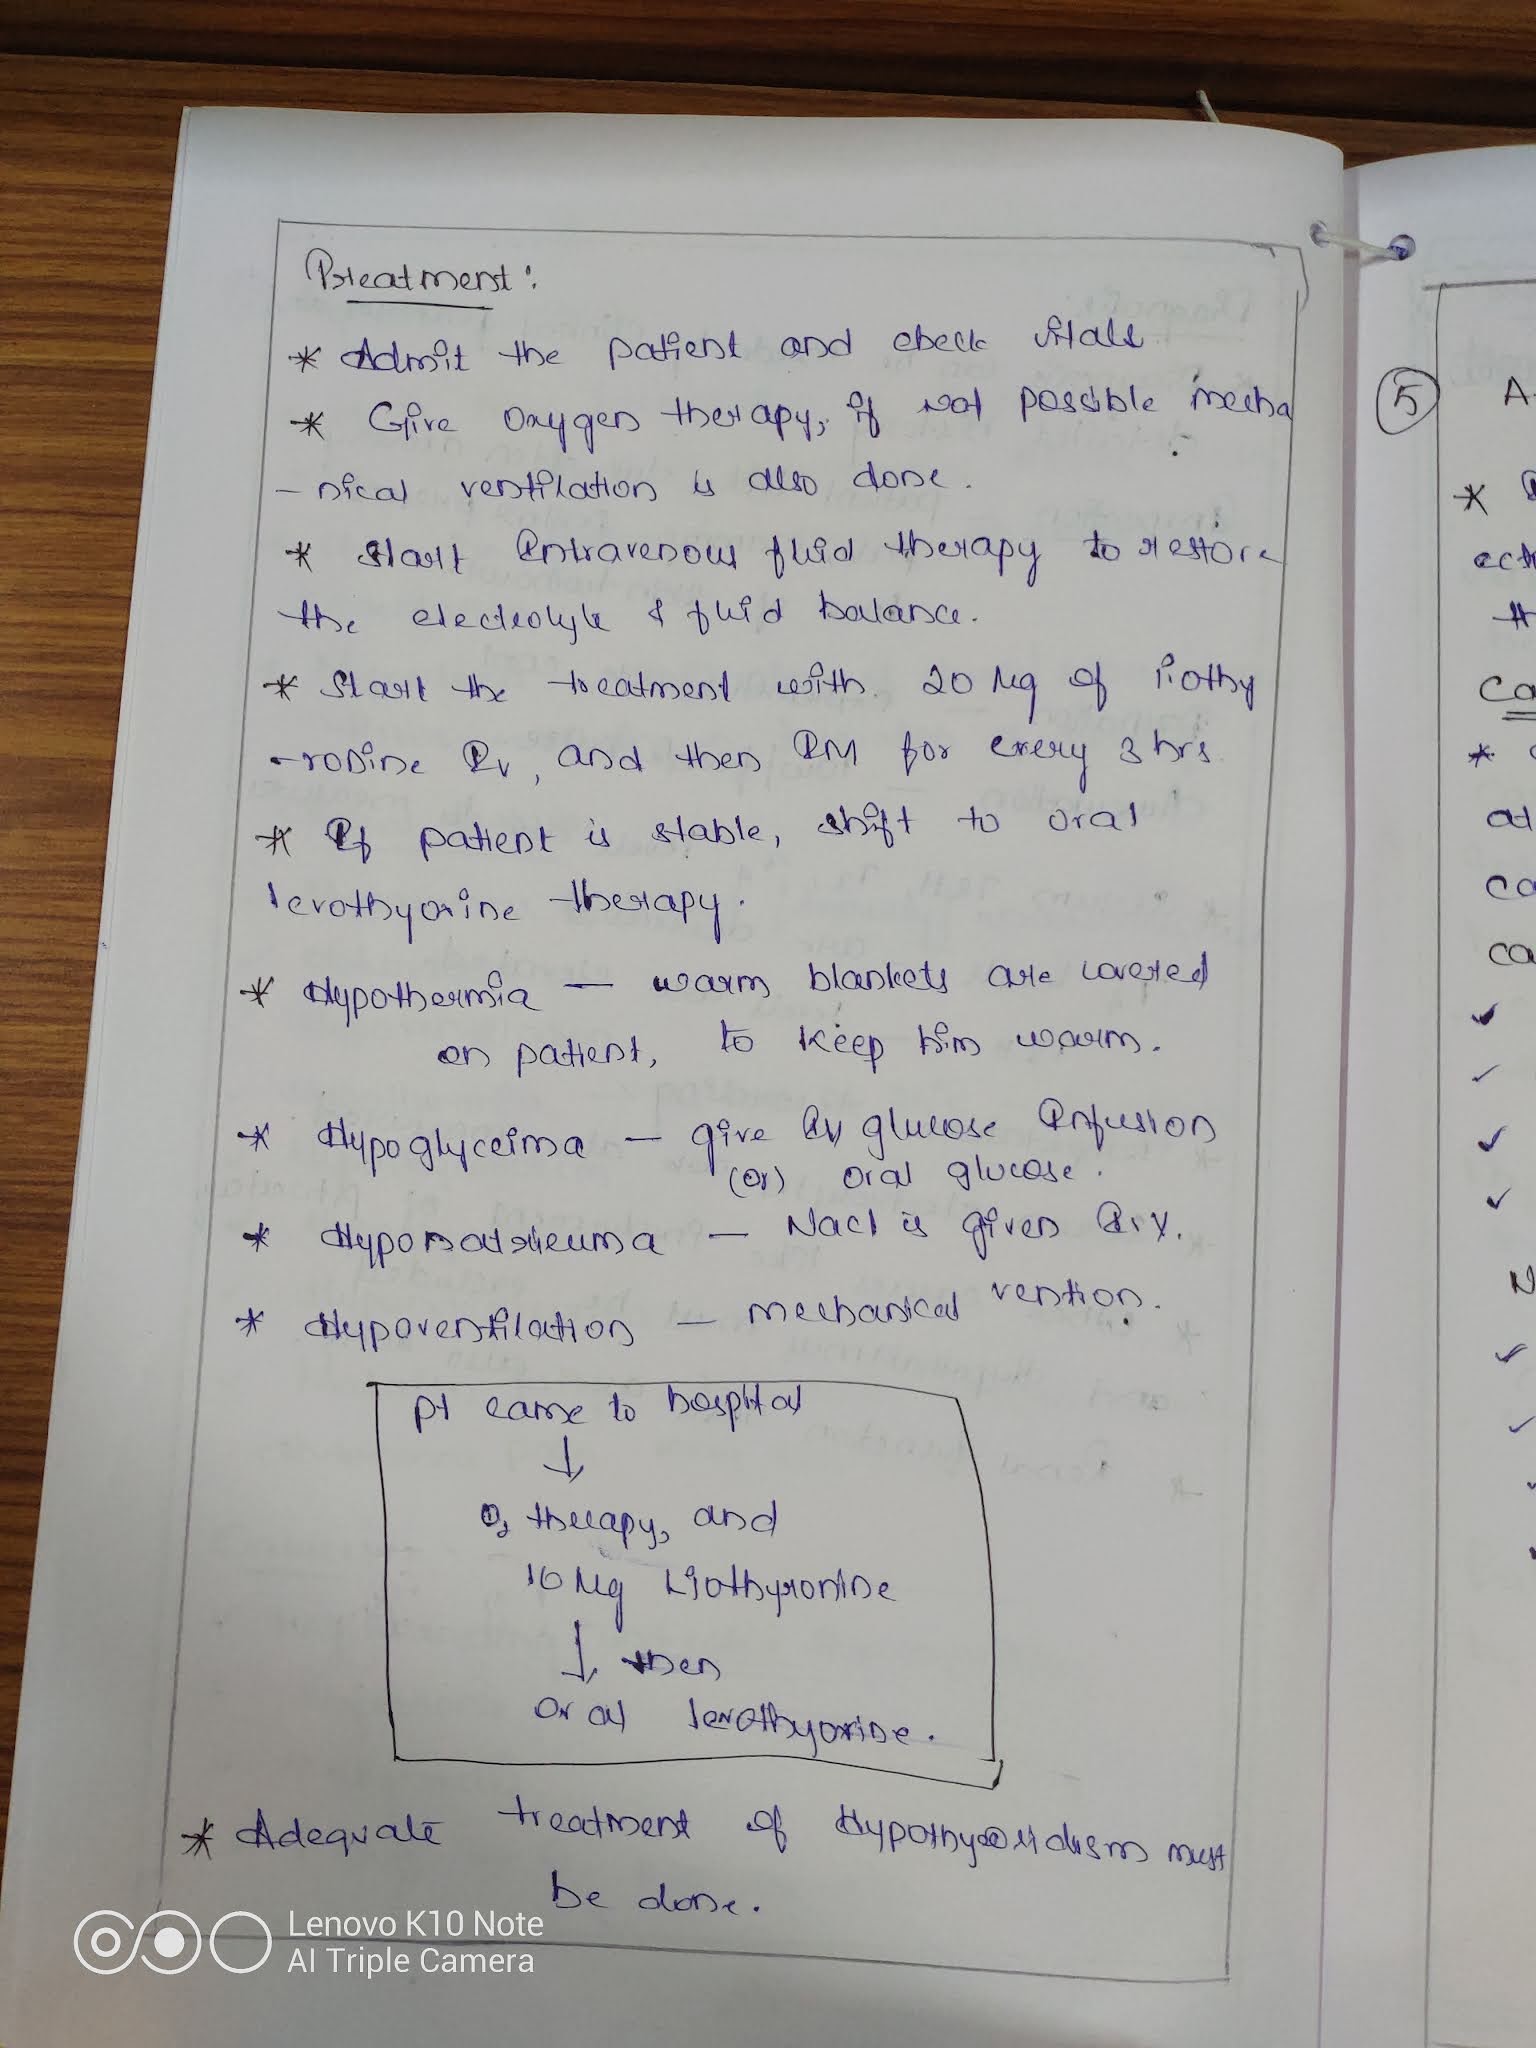 Treatment:
* Admit the patient and check vitals
* Give oxygen therapy, if not possible mecha
- nical ventilation is also done.
* Start Intravenous fluid therapy to restore
the electrolyte & fluid balance.
* Start the treatment with 20 µg of liothy
-ronine IV, and then IM for every 3 hrs.
* If patient is stable, shift to oral
levothyorine therapy.
* Hypothermia — warm blankets are covered
on patient, to keep him warm.
* Hypoglyceima — give IV glucose Infusion
(or) oral glucose.
* Hyponatrieuma — Nacl is given
* Hypoventilation — mechanical vention.
pt came to hospital
↓
O2 therapy, and
10 µg Liothyronine
↓ then
oral levothyorine.
* Adequate treatment of Hypothyoridism must
be done.
5
*
Lenovo K10 Note
AI Triple Camera